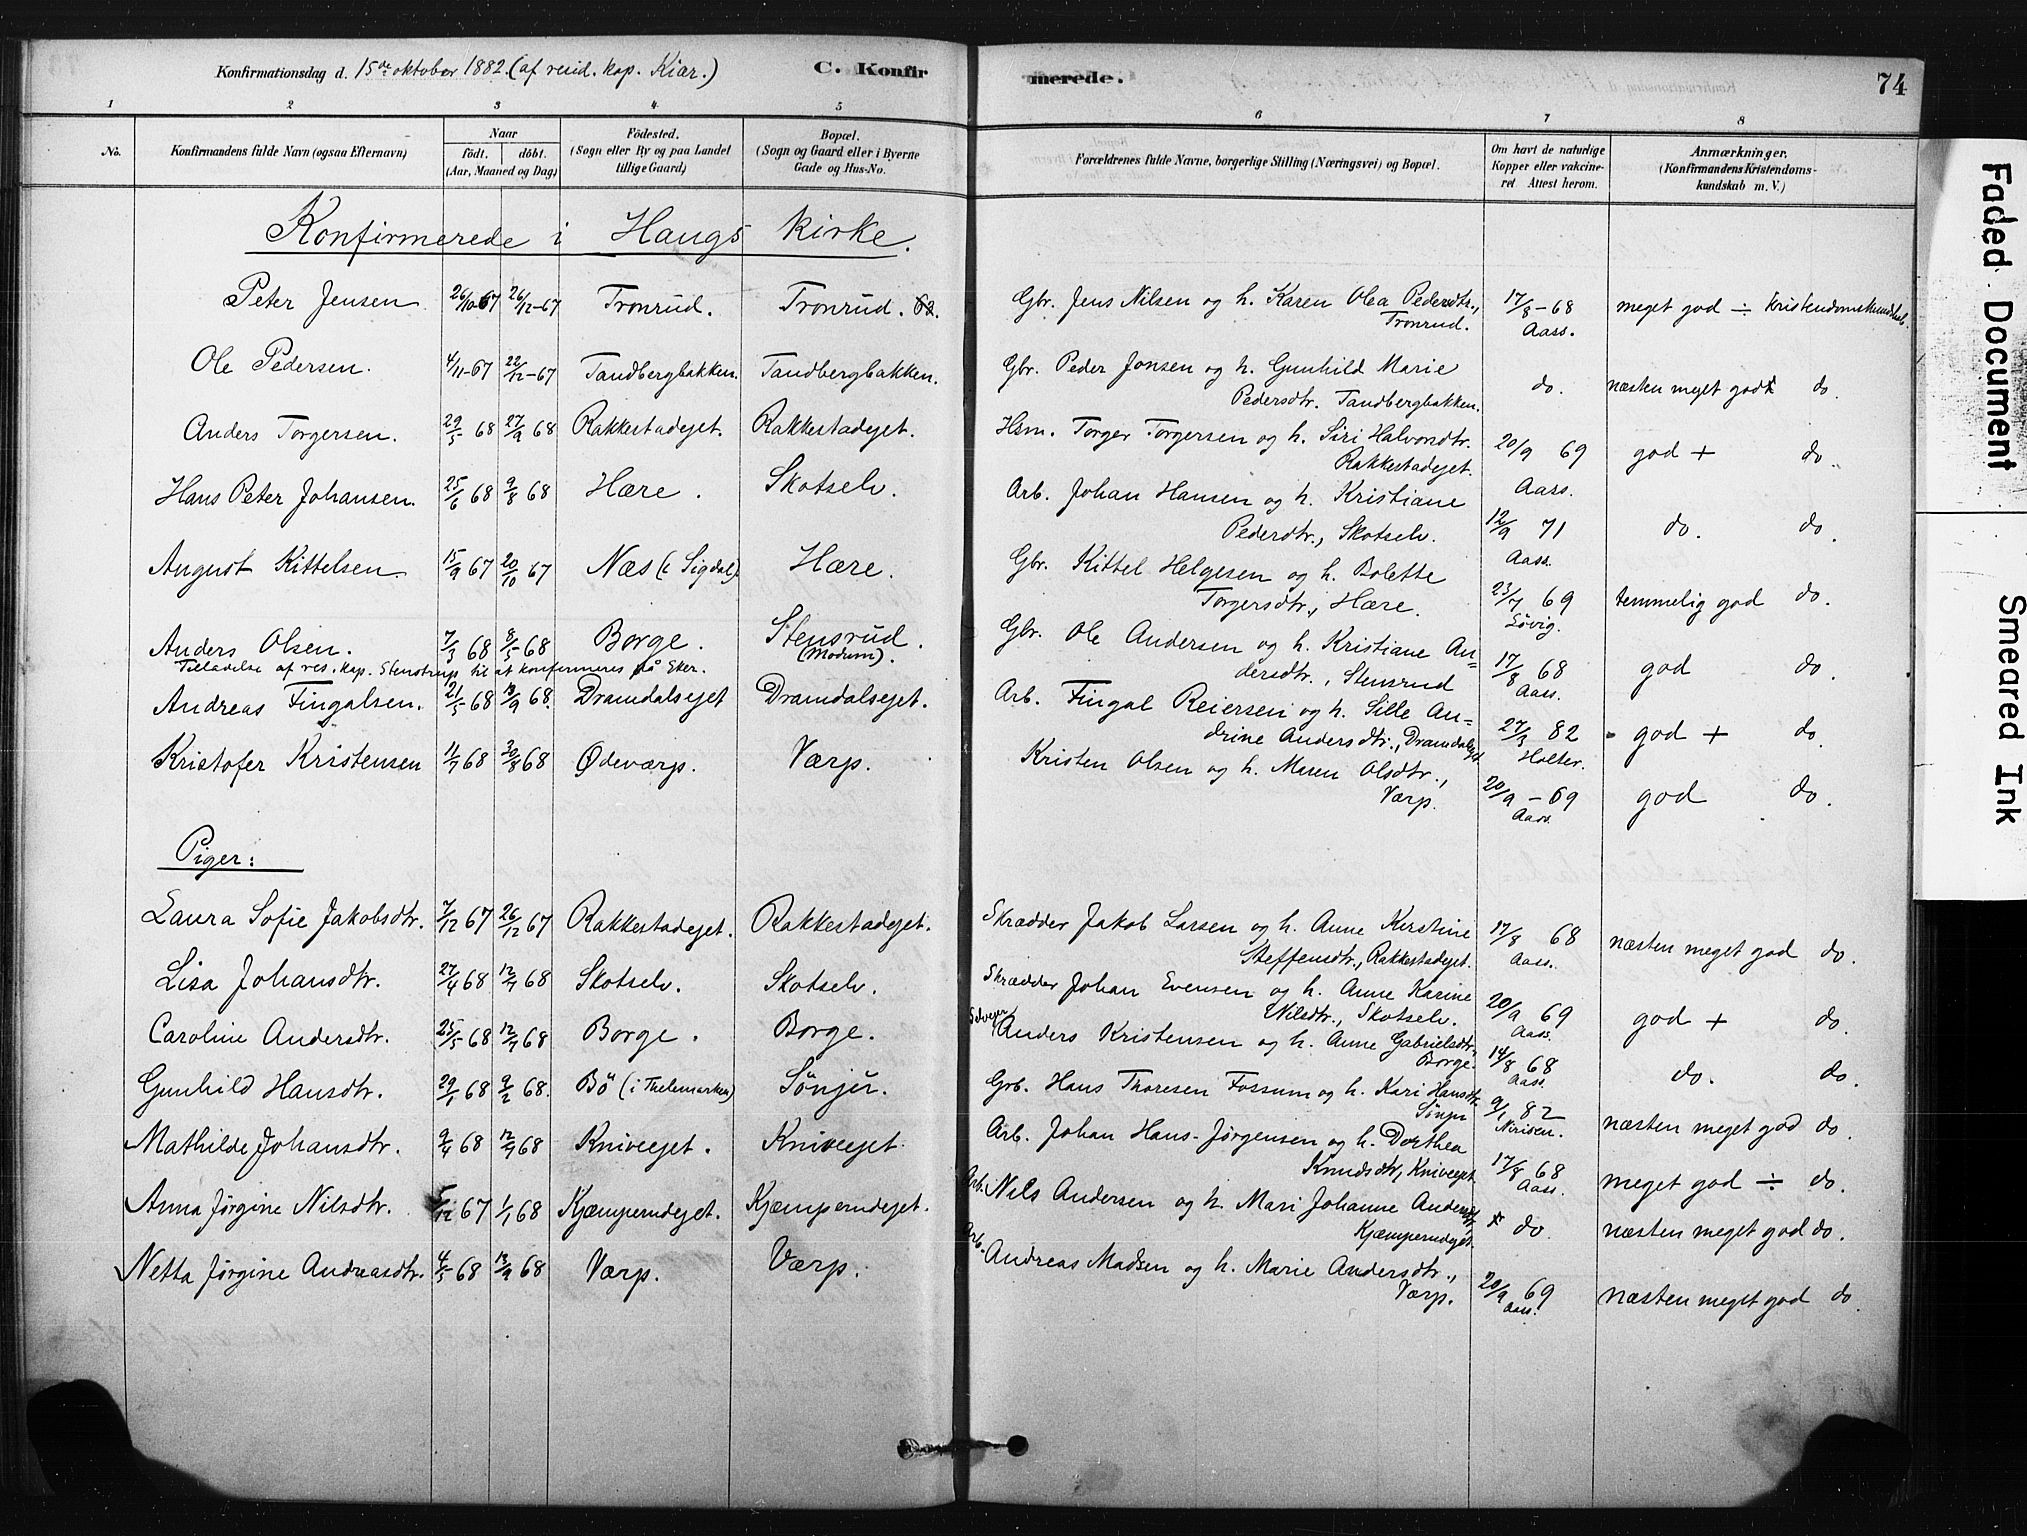 Konfirmationsdag d. 15de oktober 1882. (af resid. kap. Kiær.)
C. Konfirmerede.
74
1 2 3 4 5 6 7 8
No.
Konfirmandens fulde Navn (ogsaa Efternavn)
Naar født. døbt. (Aar, Maaned og Dag)
Fødested. (Sogn eller By og paa Landet tillige Gaard)
Bopæl. (Sogn og Gaard eller i Byerne Gade og Hus-No.
Forældrenes fulde Navne, borgerlige Stilling (Næringsvei) og Bopæl.
Om havt de naturlige Kopper eller vakcineret Attest herom.
Anmærkninger. (Konfirmandens Kristendomskundskab m. V.)
Konfirmerede i Haugs Kirke.
Peter Jensen 26/10-67 26/12-67 Tronrud. Tronrud. Gbr. Jens Nilsen og h. Karen Olea Pedersdtr., Tronrud. 17/8-68 Aass. meget god ÷ Kristendomskundskab.
Ole Pedersen. 4/11-67 22/12-67 Tandbergbakken. Tandbergbakken. Gbr. Peder Jonsen og h. Gunhild Marie Pedersdtr. Tandbergbakken. do. næsten meget god do.
Anders Torgersen. 29/5 68 27/9 68 Rakkestadejet. Rakkestadejet. Hsm. Torger Torgersen og h. Siri Halvorsdtr. Rakkestadejet. 20/9 69 Aass. god + do.
Hans Peter Johansen. 25/6 68 9/8 68 Hære. Skotselv. Arb. Johan Hansen og h. Kristiane Pedersdtr., Skotselv. 12/9 71 Aass. do. do.
August Kittelsen. 15/9 67 20/10 67 Næs (i Sigdal). Hære. Gbr. Kittel Helgesen og h. Bolette Torgersdtr., Hære. 23/7 69 Løvig. temmelig god do.
Anders Olsen. 7/3 68 8/5 68 Borge. Stensrud. (Modum). Gbr. Ole Andersen og h. Kristiane Andersdtr., Stensrud 17/8 68 Aass. god do.
Tilladelse af res. kap. Stenstrup til at konfirmeres på Eker.
Andreas Fingalsen. 21/5 68 13/9 68. Dramdalsejet Dramdalsejet. Arb. Fingal Reiersen og h. Sille Andrine Andersdtr., Dramdalsejet 27/3 82 Holter. god + do.
Kristofer Kristensen 11/7 68 30/8 68 Ødeværp. Værp. Kristen Olsen og h. Maren Olsdtr., Værp. 20/9-69 Aass. god do.
Piger:
Laura Sofie Jakobsdtr. 7/12 67 26/12 67 Rakkestadejet. Rakkestadejet. Skrædder Jakob Larsen og h. Anne Kirstine Steffensdtr., Rakkestadejet. 17/8 68 Aass. næsten meget god do.
Lisa Johansdtr. 27/4 68 12/7 68 Skotselv. Skotselv. Skrædder Johan Evensen og h. Anne Karine Nilsdtr., Skotselv. 20/9 69 Aass. god + do.
Caroline Andersdtr. 25/5 68 12/7 68 Borge. Borge. Selveier Anders Kristensen og h. Anne Gabrielsdtr., Borge. 14/8 68 Aass. do. do.
Gunhild Hansdtr. 29/1 68 9/2 68. Bö (i Thelemarken) Sönju. Grb. Hans Thoresen Fossum og h. Kari Hansdtr. 9/1 82 næsten meget god do.
Mathilde Johansdtr. 9/4 68 12/7 68 Kniveejet. Kniveejet. Arb. Johan Hans-Jørgensen og h. Dorthea Knudsdtr., Kniveejet 17/8 68 Aass. meget god ÷ do.
Anna Jørgine Nilsdtr. 5/12 67 1/1 68 Kjæmperudejet. Kjæmperudejet. Arb. Nils Andersen og h. Mari Johanne Andersdtr., Kjæmperudejet. do. næsten meget god do.
Netta Jørgine Andreasdtr. 4/5 68 13/9 68 Værp. Værp. Arb. Andreas Madsen og h. Marie Andersdtr., Værp. 20/9 69 Aass. næsten meget god do.
Faded Document
Smeared Ink